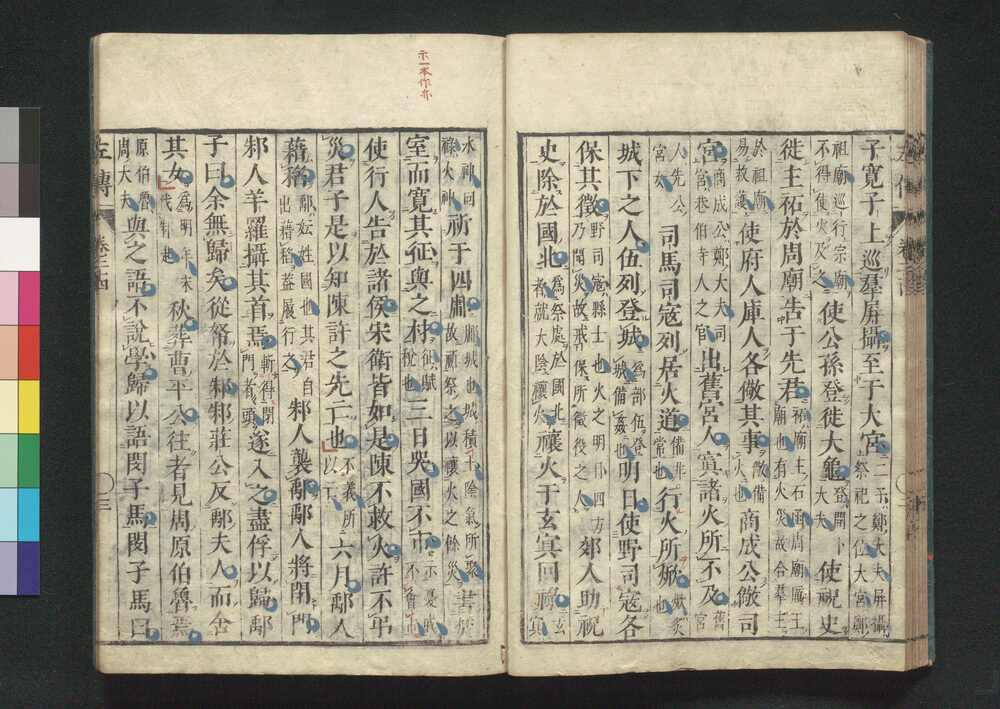 子寬子上巡羣屏攝至于大宮二子鄭大夫屏攝祭祀之位大宮鄭
祖廟巡行宗廟不得使火及之使公孫登徙大龜登開卜大夫使祝史
徙主祏於周廟告于先君祏廟主石函周廟厲王廟也有火災故合羣主
於祖廟易救護使府人庫人各儆其事儆備火也商成公儆司
宮商成公鄭大夫司宮巷伯寺人之官出舊宮人寘諸火所不及舊宮
人先公宮女司馬司寇列居火道備非常也行火所焮焮炙也
城下之人伍列登城為部伍登城備姦也明日使野司寇各
保其徵野司寇縣士也火之明日四方乃聞災故戒保所徵役之人郊人助祝
史除於國北為祭處於國北者就大陰禳火禳火于玄冥回祿玄冥
示一本作亦
水神回祿火神祈于四鄘鄘城也城積土陰氣所聚故祈祭之以禳火之餘災書焚
室而寬其征與之材征賦稅也三日哭國不市示憂戚不會市
使行人告於諸侯宋衛皆如是陳不救火許不弔
災君子是以知陳許之先亡也不義所以亡六月鄅人
藉稻鄅妘姓國也其君自出藉稻蓋履行之邾人襲鄅鄅人將閉門
邾人羊羅攝其首焉斬得閉門者頭遂入之盡俘以歸鄅
子曰余無歸矣從帑於邾邾莊公反鄅夫人而舍
其女為明年宋伐邾起秋葬曹平公往者見周原伯魯焉
原伯魯周大夫與之語不說學歸以語閔子馬閔子馬曰
左傳 卷二十四 三